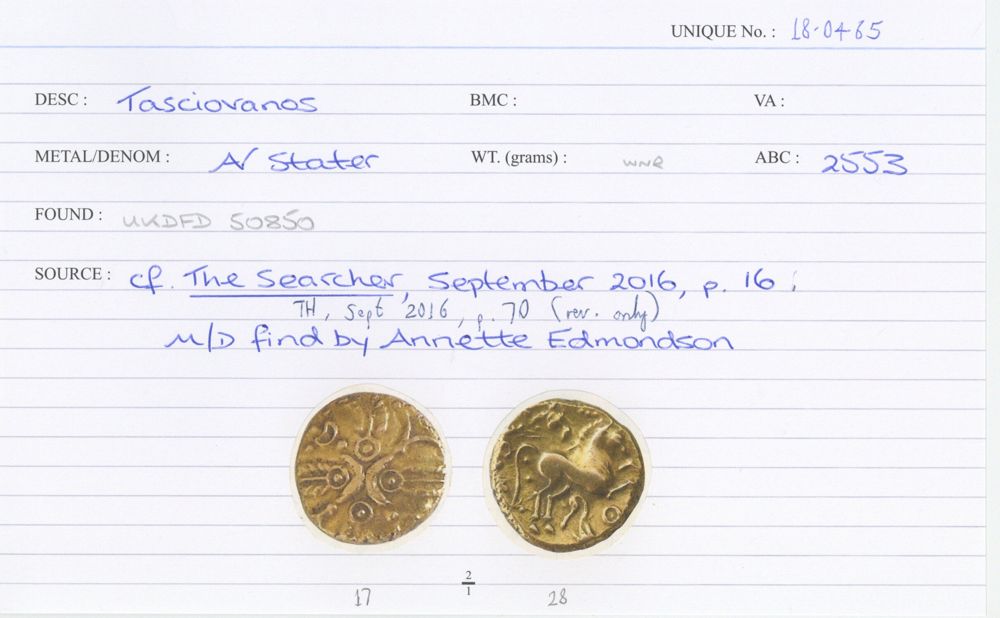 UNIQUE No. : 18·0465
DESC : Tasciovanos BMC : VA :
METAL/DENOM : A/ Stater WT. (grams) : WNR ABC : 2553
FOUND : UKDFD 50850
SOURCE : cf. The Searcher, September 2016, p. 16 ;
TH, Sept 2016, p. 70 (rev. only)
M/D find by Annette Edmondson
2
1
17 28